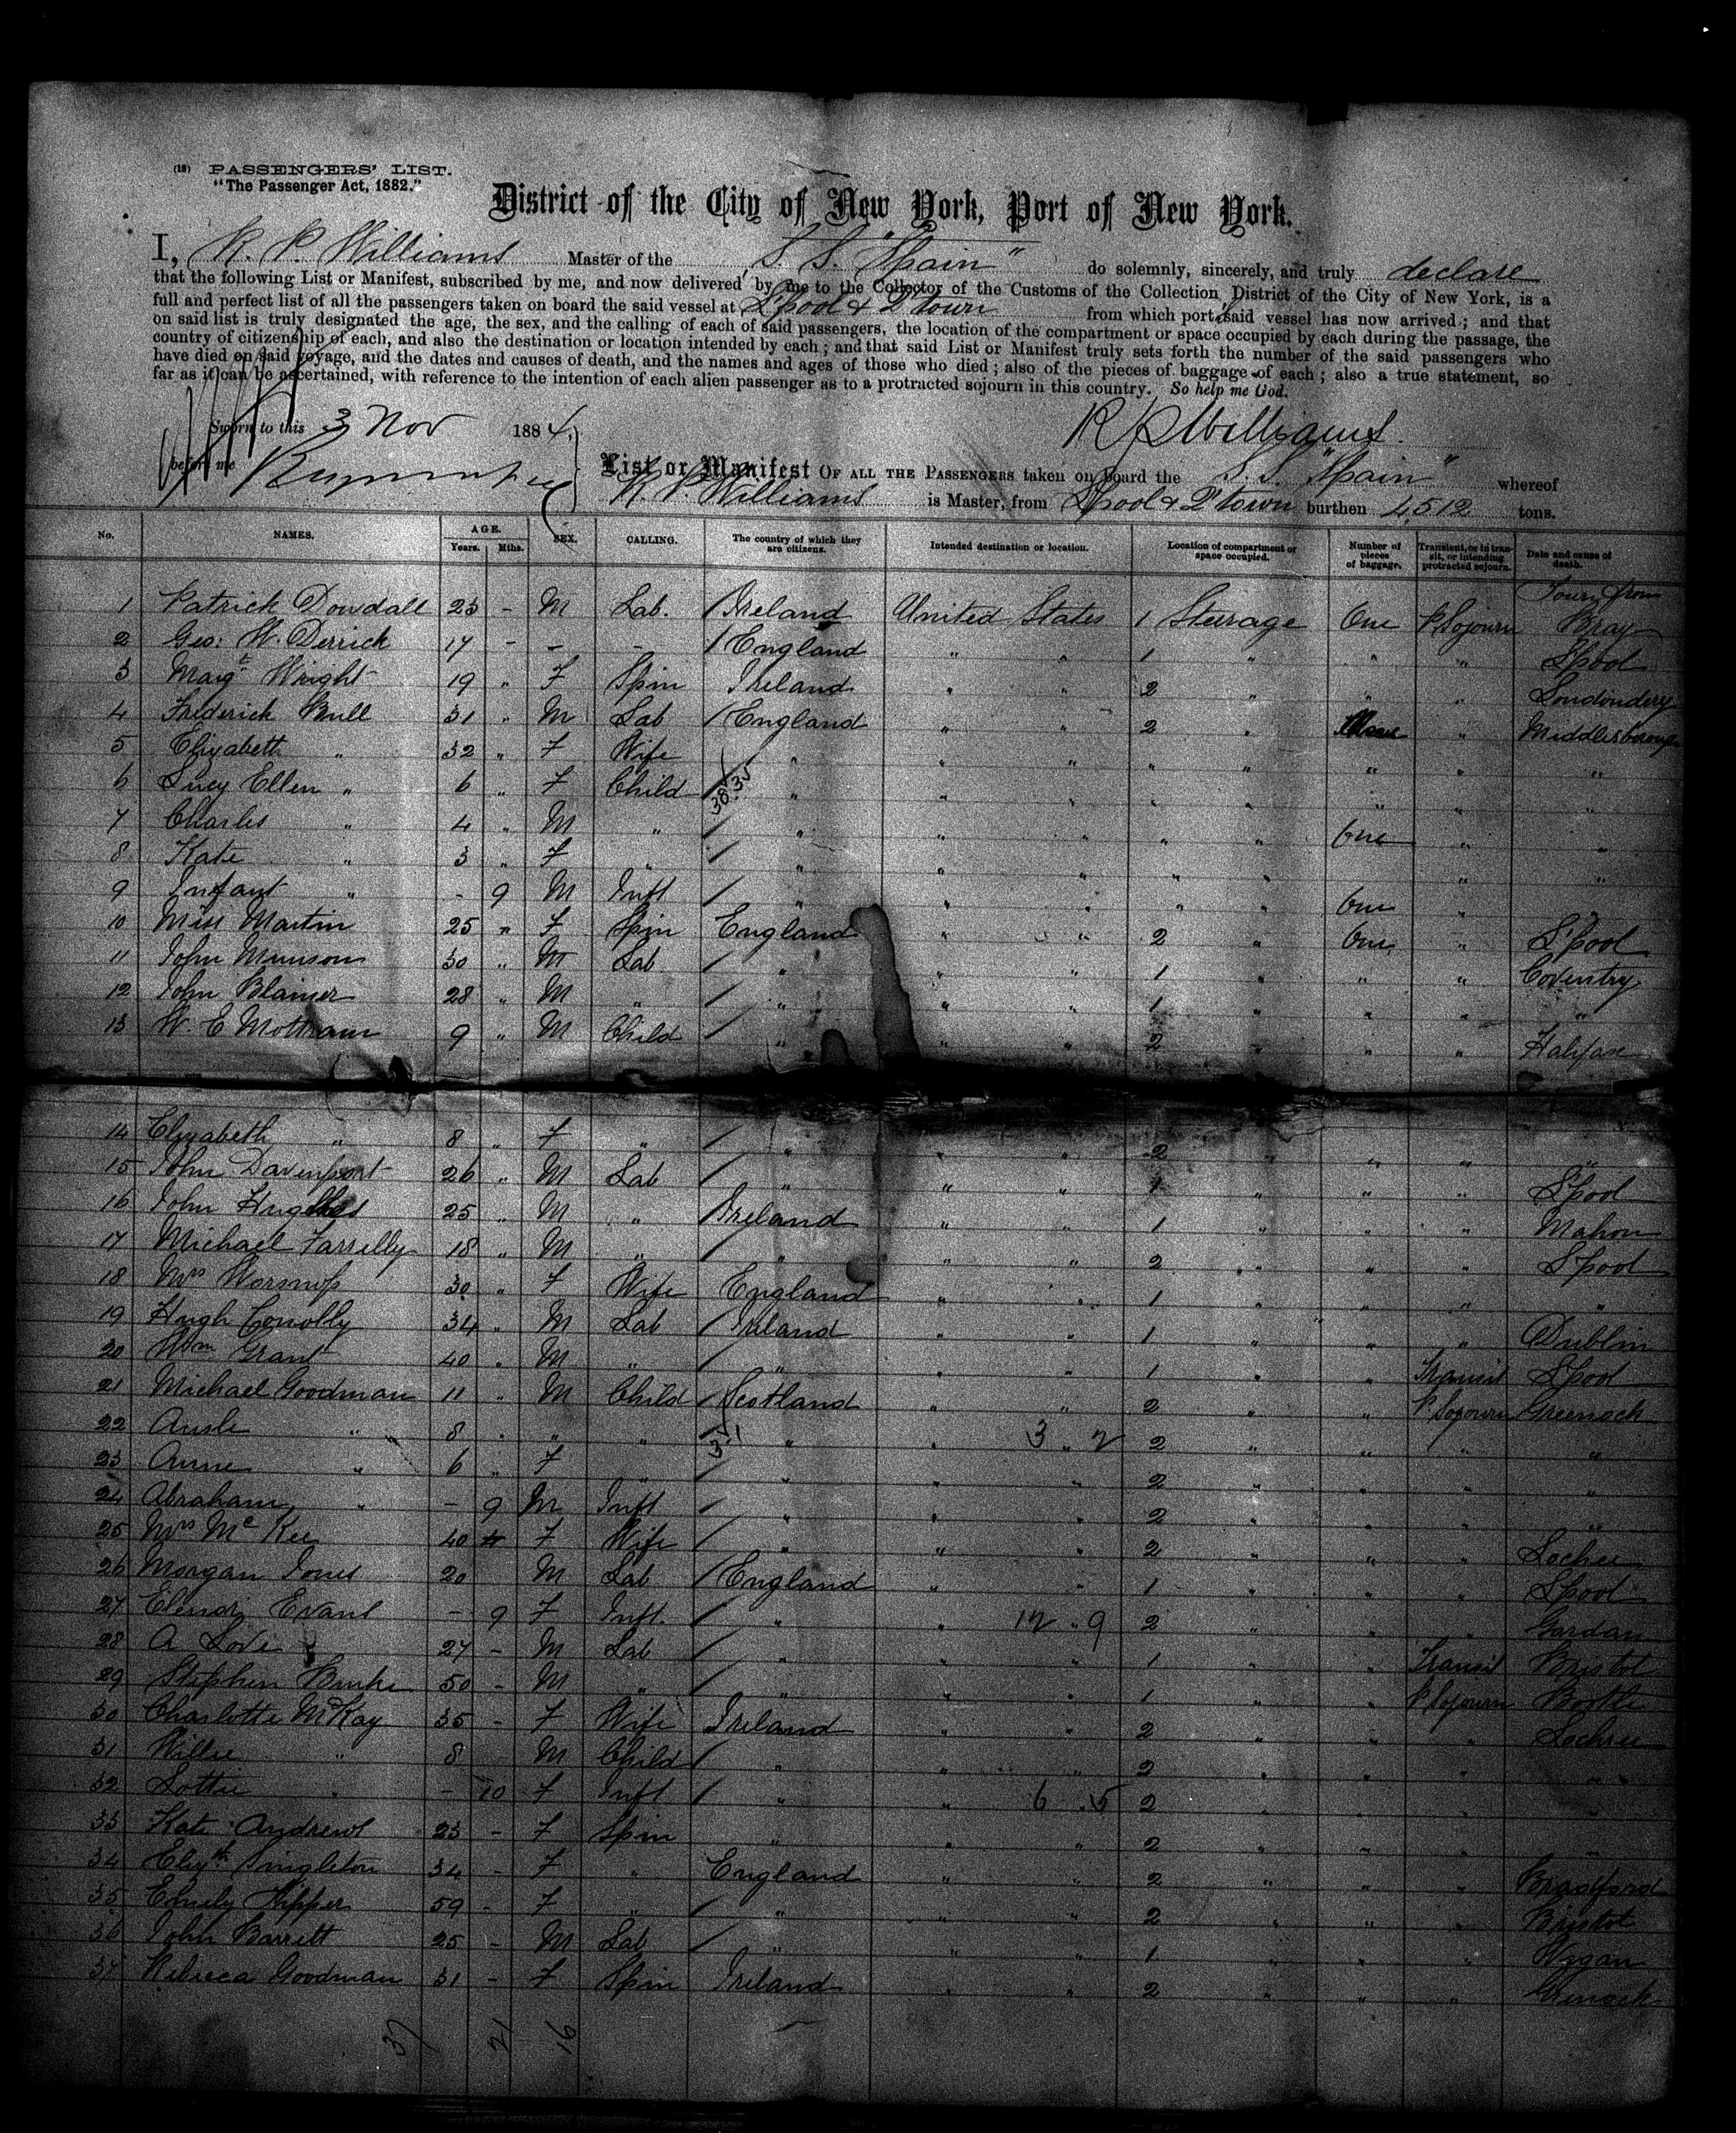 (18) PASSENGERS' LIST.
"The Passenger Act, 1882."
District of the City of New York, Port of New York.
I, R. P. Williams Master of the S. S. "Spain" do solemnly, sincerely, and truly declare
that the following List or Manifest, subscribed by me, and now delivered by me to the Collector of the Customs of the Collection District of the City of New York, is a
full and perfect list of all the passengers taken on board the said vessel at L'pool & Q'town from which port said vessel has now arrived; and that
on said list is truly designated the age, the sex, and the calling of each of said passengers, the location of the compartment or space occupied by each during the passage, the
country of citizenship of each, and also the destination or location intended by each; and that said List or Manifest truly sets forth the number of the said passengers who
have died on said voyage, and the dates and causes of death, and the names and ages of those who died; also of the pieces of baggage of each; also a true statement, so
far as it can be ascertained, with reference to the intention of each alien passenger as to a protracted sojourn in this country. So help me God.
Sworn to this 3 Nov 1884. R P Williams
before me
List or Manifest OF ALL THE PASSENGERS taken on board the S.S. "Spain" whereof
R. P. Williams is Master, from L'pool & Q'town burthen 4512 tons.
No. NAMES. AGE. Years. Mths. SEX. CALLING. The country of which they are citizens. Intended destination or location. Location of compartment or space occupied. Number of pieces of baggage. Transient, or in transit, or intending protracted sojourn. Date and cause of death.
Town from
1 Patrick Dowdall 23 - M Lab. / Ireland United States 1 Steerage One P. Sojourn Bray
2 Geo: W. Derrick 17 - - - / England " " 1 " " " L'pool
3 Margt Wright 19 " F Spin Ireland " " 2 " " " Londondery
4 Frederick Bull 31 " M Lab / England " " 2 " " Middlesborough
5 Elizabeth " 32 " F Wife " " " " " " " "
6 Lucy Ellen " 6 " F Child / " " " " " " " "
7 Charles " 4 " M " / " " " " " One " "
8 Kate " 3 " F " / " " " " " " "
9 Infant " - 9 M Inft / " " " " " One "
10 Miss Martin 25 " F Spin England " " 2 " One " L'pool
11 John Munson 30 " M Lab / " " " 1 " " " Coventry
12 John Blamer 28 " M " / " " " 1 " " " "
13 W. E Mottram 9 " M Child / " " " 2 " " " Halifax
14 Elizabeth " 8 " F " / " " " 2 " " " "
15 John Davenport 26 " M Lab / " " " 1 " " " L'pool
16 John Hughes 25 " M " / Ireland " " 1 " " " Mahon
17 Michael Farrelly 18 " M " / " " " 2 " " " L'pool
18 Mrs Worsnop 30 " F Wife England " " 1 " " " "
19 Hugh Conolly 34 " M Lab / Ireland " " 1 " " " Dublin
20 Wm Grant 40 " M " / " " " 1 " " Transit L'pool
21 Michael Goodman 11 " M Child / Scotland " " 2 " " P. Sojourn Greenock
22 " 8 " " " / " " 3 " 2 2 " " " "
23 Anne " 6 " F " / " " " 2 " " " "
24 Abraham " - 9 M Inft / " " " 2 " " " "
25 Mrs McKee 40 F Wife / " " " 2 " " " Lochee
26 Morgan Jones 20 M Lab / England " " 1 " " " L'pool
27 Elenor Evans - 9 F Inft. / " " 12 " 9 2 " " "
28 A Love 27 - M Lab / " " " 1 " " Transit Bristol
29 Stephen Burke 50 - M " / " " " 1 " " P. Sojourn Bootle
30 Charlotte McKay 35 - F Wife Ireland " " 2 " " " Lochee
31 Willie " 8 M Child / " " " 2 " " " "
32 Lottie " - 10 F Inft / " " 6 " 5 2 " " " "
33 Kate Andrews 23 - F Spin " " " 2 " " " "
34 Elizth Singleton 34 - F " England " " 2 " " " Bradford
35 Emily Hipper 59 - F " / " " " 2 " " " Bristol
36 John Barrett 25 - M Lab / " " " 1 " " " Wigan
37 Rebecca Goodman 31 - F Spin Ireland " " 2 " " " Grenock
37 21 16